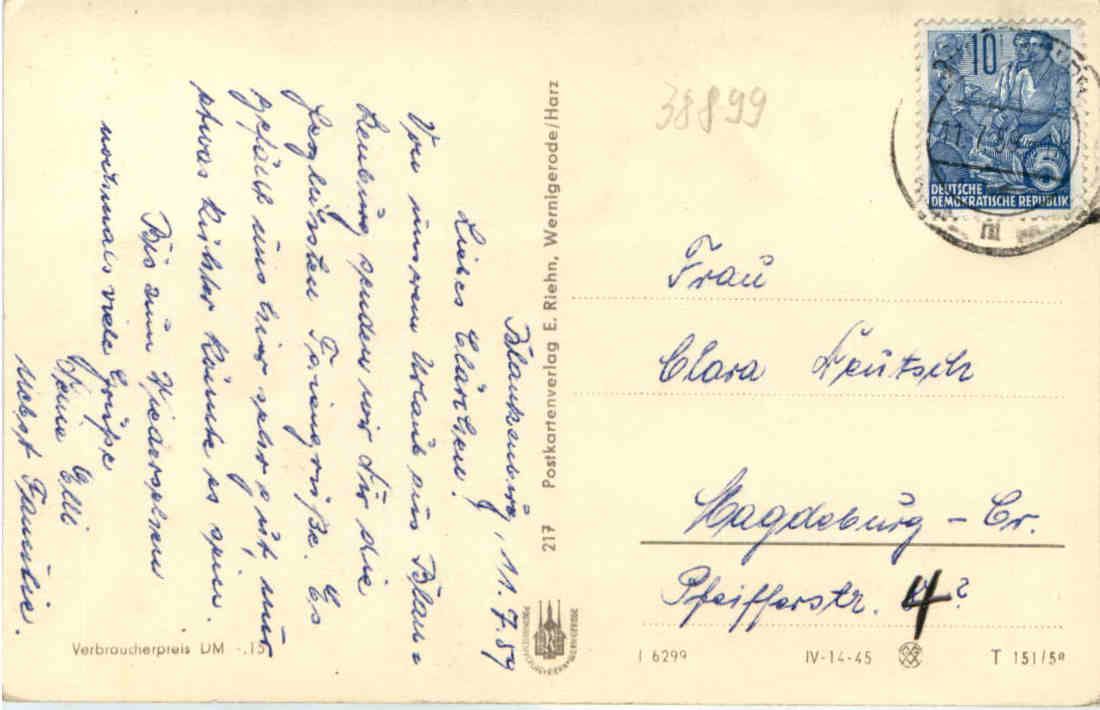 Blankenburg, 11.7.59
Liebes Clärchen!
Von unserem Urlaub aus Blan-
kenburg senden wir Dir die
herzlichsten Feriengrüße. Es
gefällt uns hier sehr gut, nur
etwas kühler könnte es sein.
Bis zum Wiedersehen
nochmals viele Grüße
Deine Elli
nebst Familie.
Verbraucherpreis DM -.15
217 Postkartenverlag E. Riehn, Wernigerode/Harz
38899
10
11.7.59
5
DEUTSCHE
DEMOKRATISCHE REPUBLIK
Frau
Clara Deutsch
Magdeburg - Cr.
Pfeifferstr. 4 ?
I 6299 IV-14-45 T 151/58